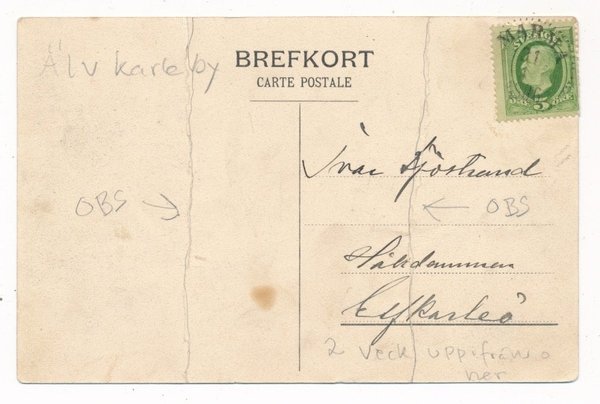 Älvkarleby
BREFKORT
CARTE POSTALE
SVERIGE
5
Ivar Sjöstrand
OBS →
← OBS
Elfkarleö
2 Veck uppifrån o
ner